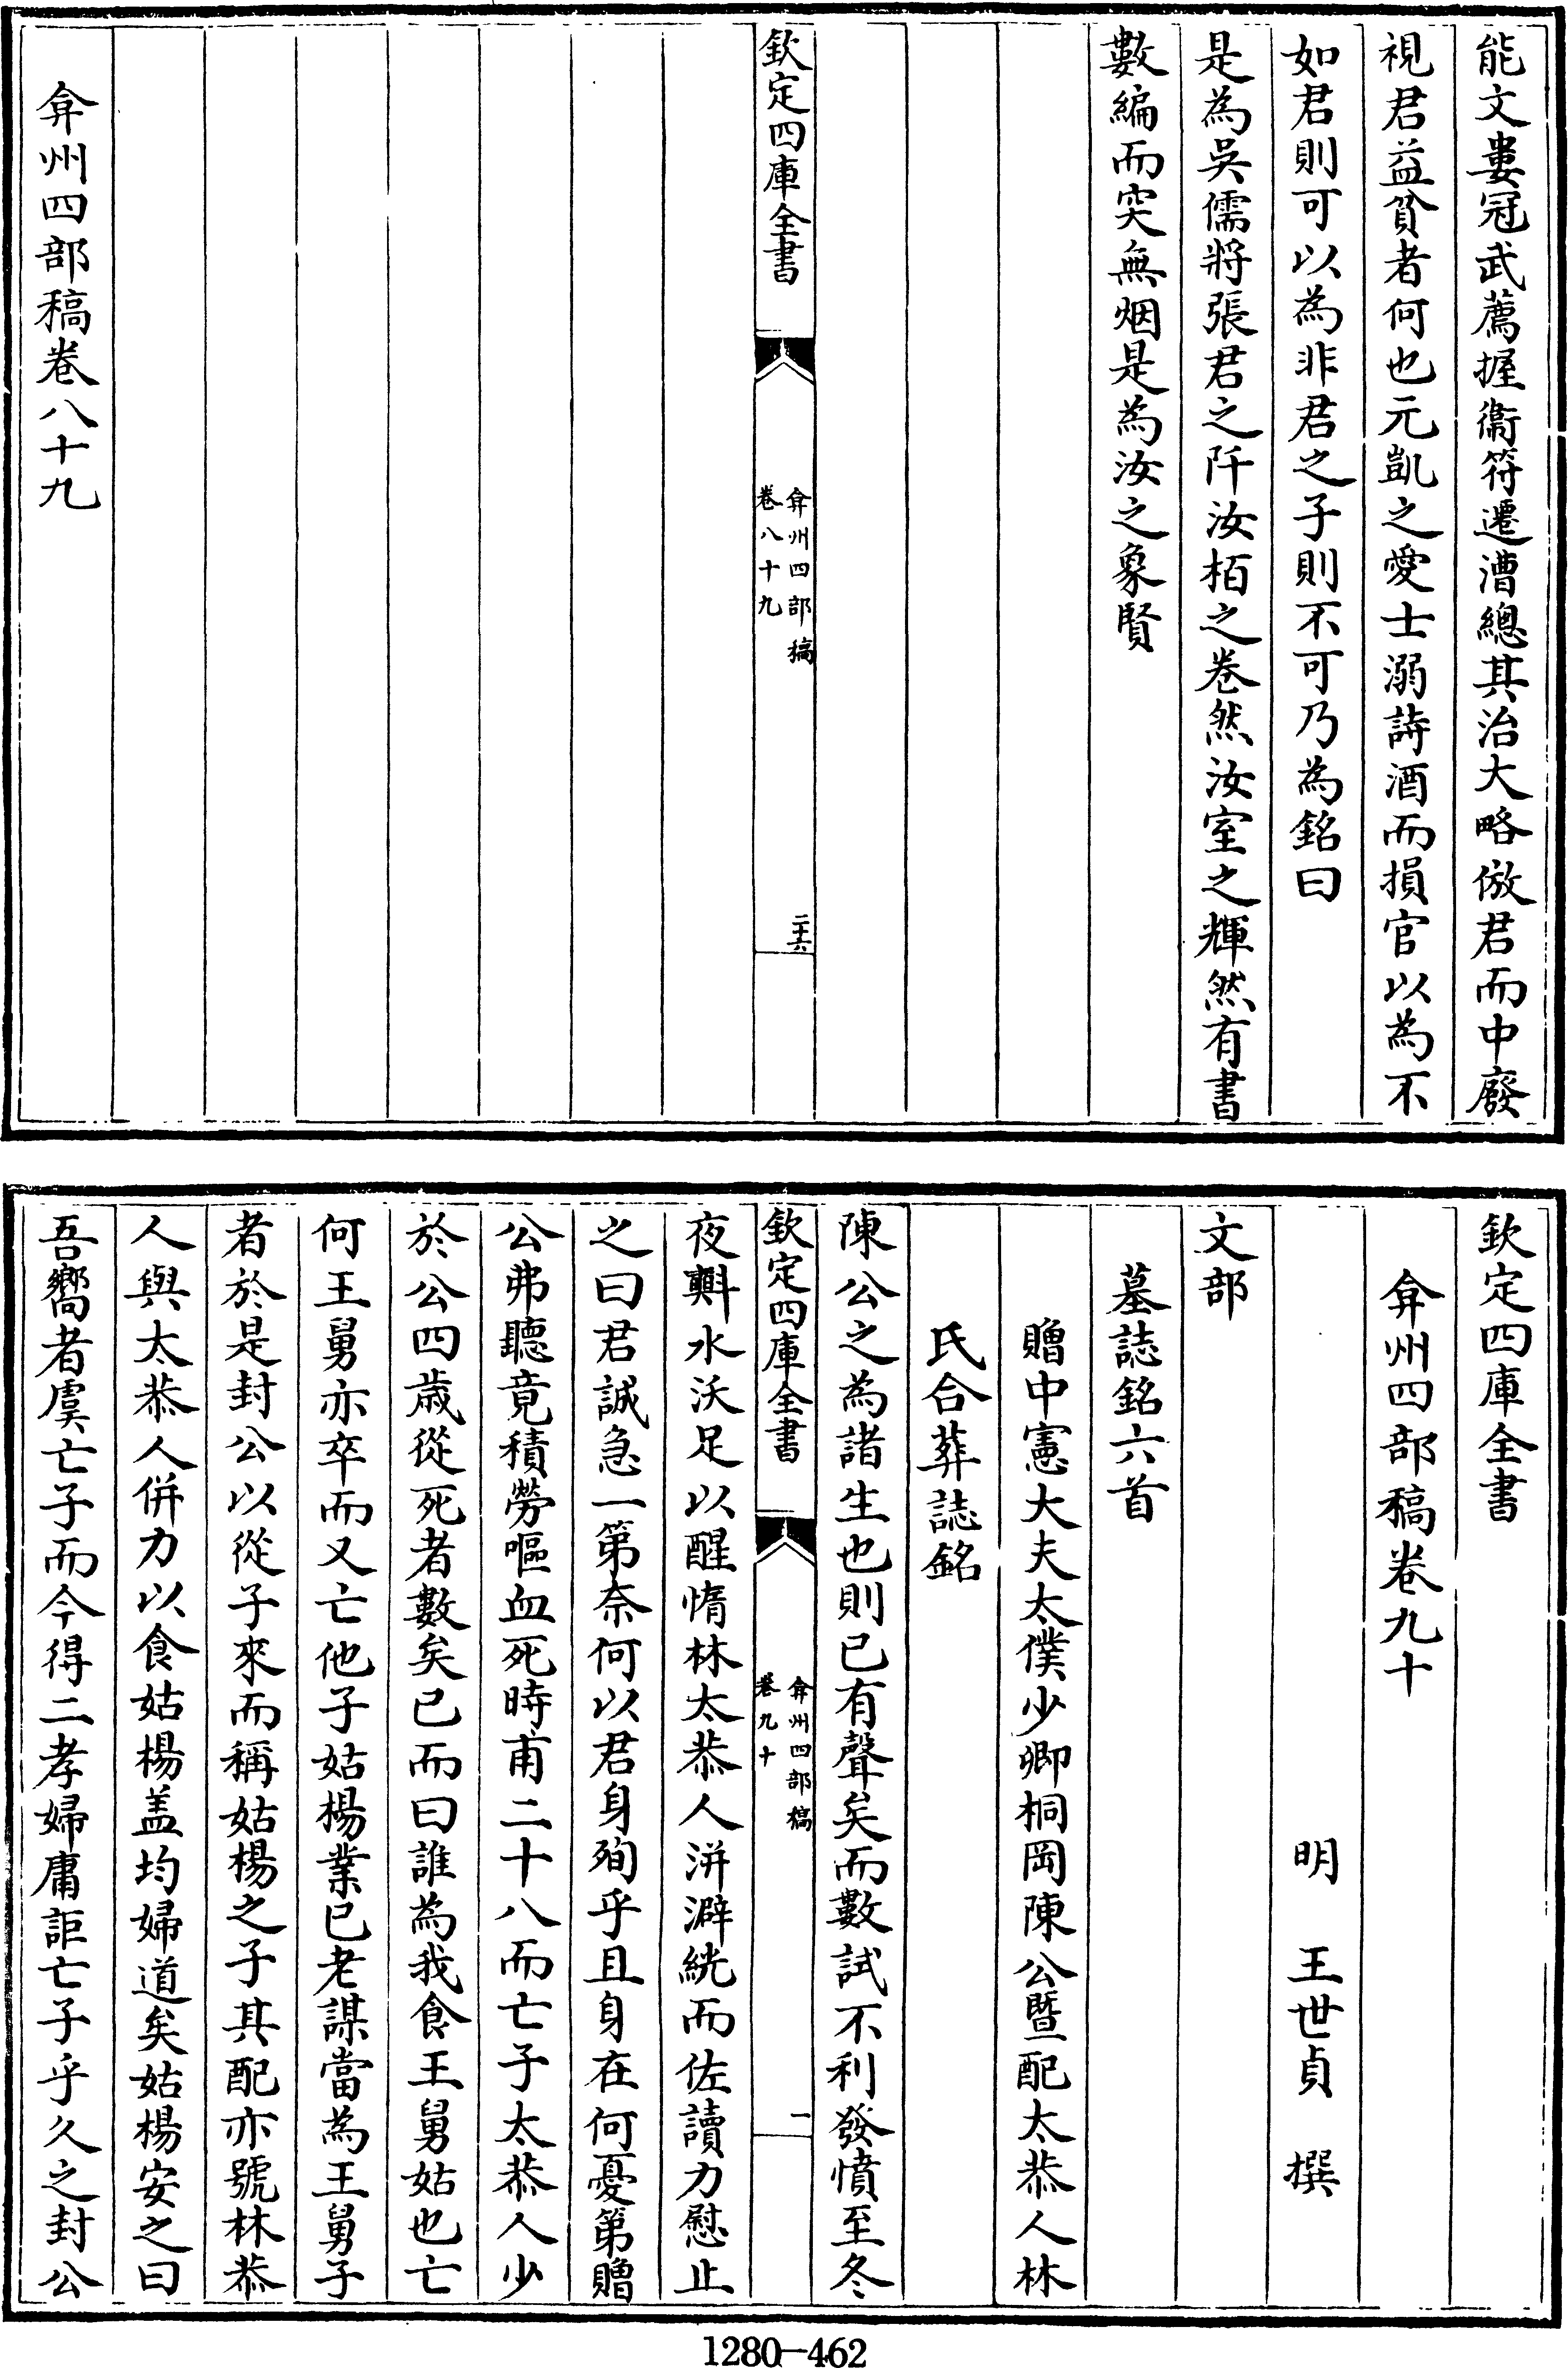 能文婁冠武薦握衞符遷漕總其治大略倣君而中廢
視君益貧者何也元凱之愛士溺詩酒而損官以為不
如君則可以為非君之子則不可乃為銘曰
是為吳儒將張君之阡汝栢之卷然汝室之輝然有書
數編而突無烟是為汝之象賢
欽定四庫全書
弇州四部稿
卷八十九
二十六
弇州四部稿卷八十九
欽定四庫全書
弇州四部稿卷九十
明 王世貞 撰
文部
墓誌銘六首
贈中憲大夫太僕少卿桐岡陳公暨配太恭人林
氏合葬誌銘
陳公之為諸生也則已有聲矣而數試不利發憤至冬
欽定四庫全書
弇州四部稿
卷九十
一
夜㪺水沃足以醒惰林太恭人洴澼絖而佐讀力慰止
之曰君誠急一第奈何以君身殉乎且身在何憂第贈
公弗聽竟積勞嘔血死時甫二十八而亡子太恭人少
於公四歲從死者數矣已而曰誰為我食王舅姑也亡
何王舅亦卒而又亡他子姑楊業已老謀當為王舅子
者於是封公以從子來而稱姑楊之子其配亦號林恭
人與太恭人併力以食姑楊盖均婦道矣姑楊安之曰
吾嚮者虞亡子而今得二孝婦庸詎亡子乎久之封公
1280—462